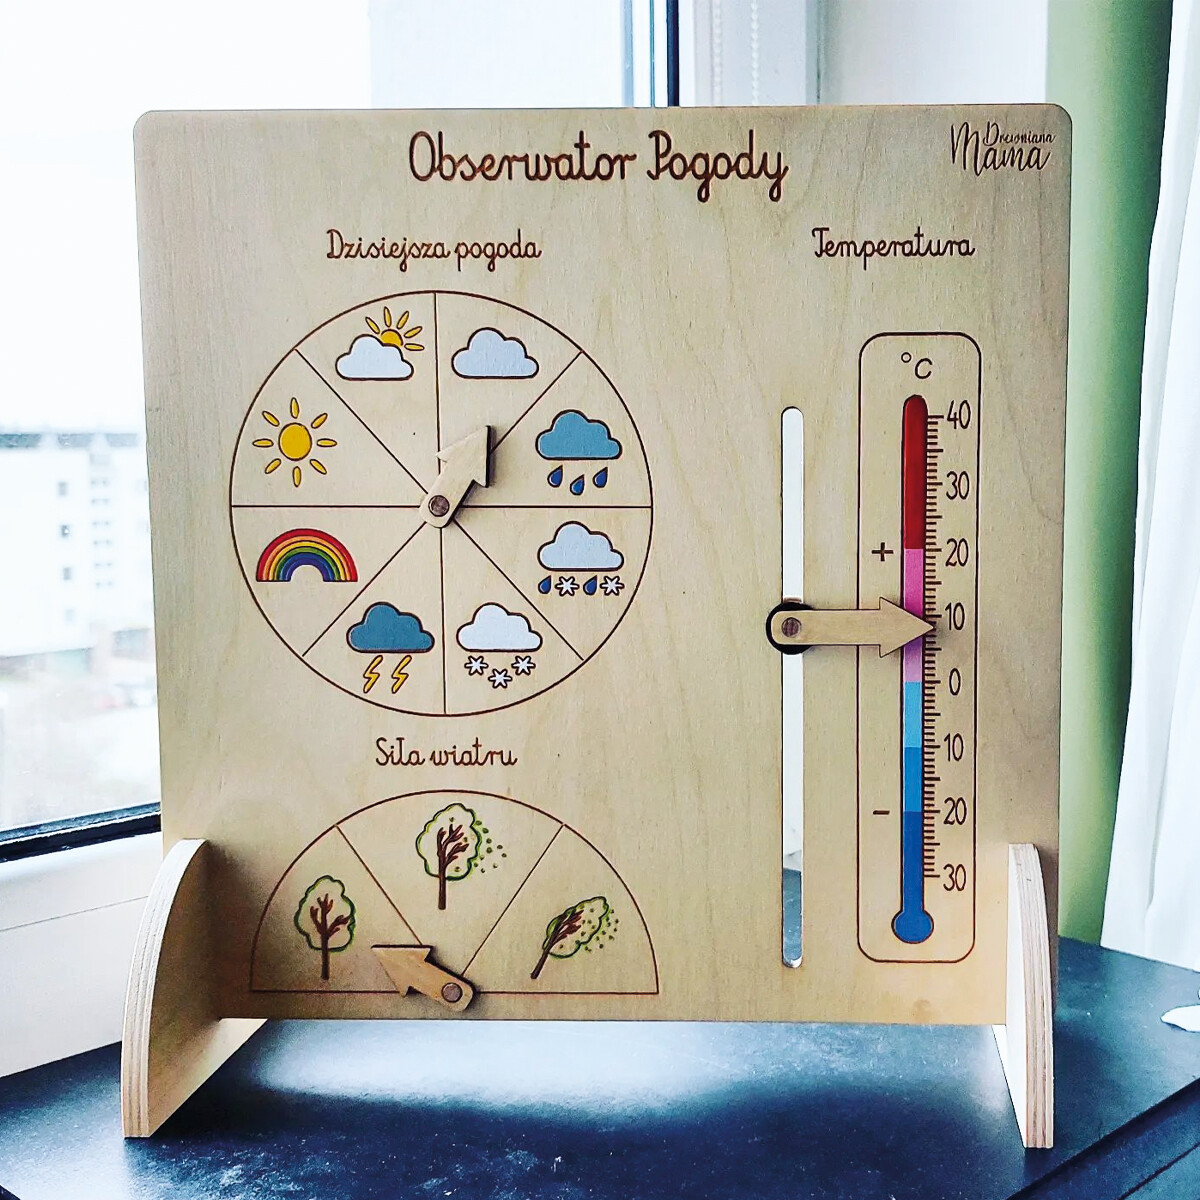 Obserwator Pogody
Drewniana
Mama
Dzisiejsza pogoda
Temperatura
°C
40
30
+ 20
10
0
10
- 20
30
Siła wiatru